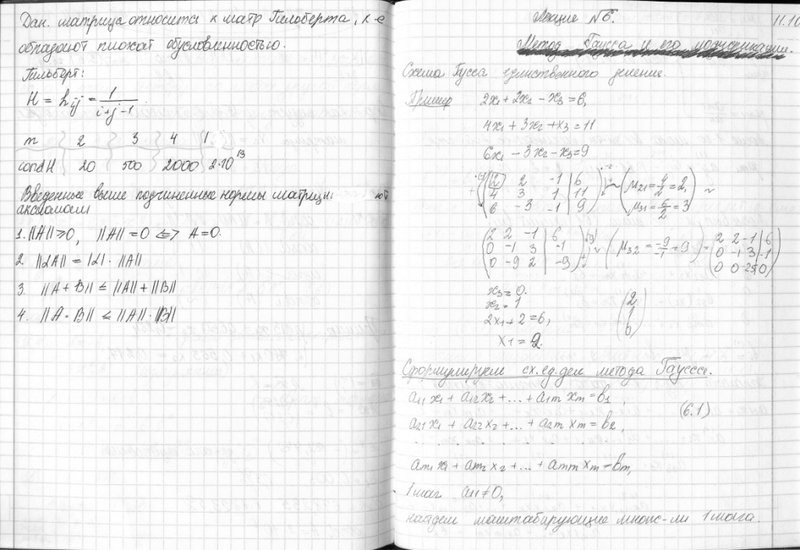 Дан. матрица относится к матр Гильберта, к-е
обладают плохой обусловленностью.
Гильберт:
H = h_ij = 1/(i+j-1)
m 2 3 4 1
condH 20 500 2000 2·10^13
Введенные выше подчиненные нормы матрицы ют
аксиомам
1. ||A|| ≥ 0, ||A|| = 0 <=> A = 0.
2. ||αA|| = |α| · ||A||
3. ||A + B|| ≤ ||A|| + ||B||
4. ||A · B|| ≤ ||A|| · ||B||
11.10
Лекция №6.
Метод Гаусса и его модификации.
Схема Гусса единственного деления.
Пример 2x1 + 2x2 - x3 = 6,
4x1 + 3x2 + x3 = 11
6x1 - 3x2 - x3 = 9
(2 2 -1 | 6
4 3 1 | 11
6 -3 -1 | 9) ~ (μ21 = 4/2 = 2,
μ31 = 6/2 = 3) ~
(2 2 -1 | 6
0 -1 3 | -1
0 -9 2 | -9) ~ (μ32 = -9/-1 = 9) ~ (2 2 -1 | 6
0 -1 3 | -1
0 0 -25 | 0)
x3 = 0.
x2 = 1
2x1 + 2 = 6,
x1 = 2.
Сформулируем сх.ед.дел метода Гаусса.
a11 x1 + a12 x2 + ... + a1m xm = b1,
(6.1)
a21 x1 + a22 x2 + ... + a2m xm = b2,
. . . . . . . .
am1 x1 + am2 x2 + ... + amm xm = bm,
1 шаг. a11 ≠ 0,
найдем маштабирующие множ-ли 1 шага.